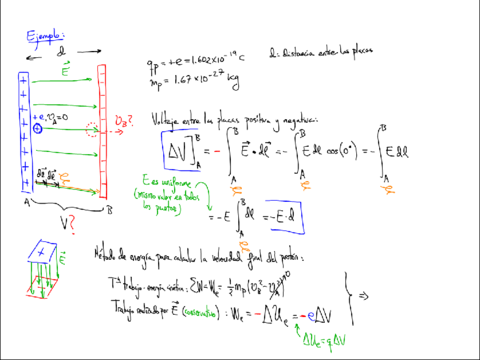 Ejemplo:
d
E⃗
+e, v_A=0
v_B?
dl⃗ dl⃗
A B
V?
E⃗
q_p = +e = 1.602×10⁻¹⁹ C d: distancia entre las placas
m_p = 1.67×10⁻²⁷ kg
Voltaje entre las placas positiva y negativa:
ΔV]_A^B = -∫_A^B E⃗•dl⃗ = -∫_A^B E dl cos(0°) = -∫_A^B E dl
E es uniforme
(mismo valor en todos
los puntos)
= -E ∫_A^B dl = -E·d
Método de energía para calcular la velocidad final del protón:
Tª trabajo-energía cinética: ΣW = W_e = ½ m_p (v_B² - v_A²) 0
Trabajo realizado por E⃗ (conservativo): W_e = -ΔU_e = -eΔV
ΔU_e = qΔV
⇒